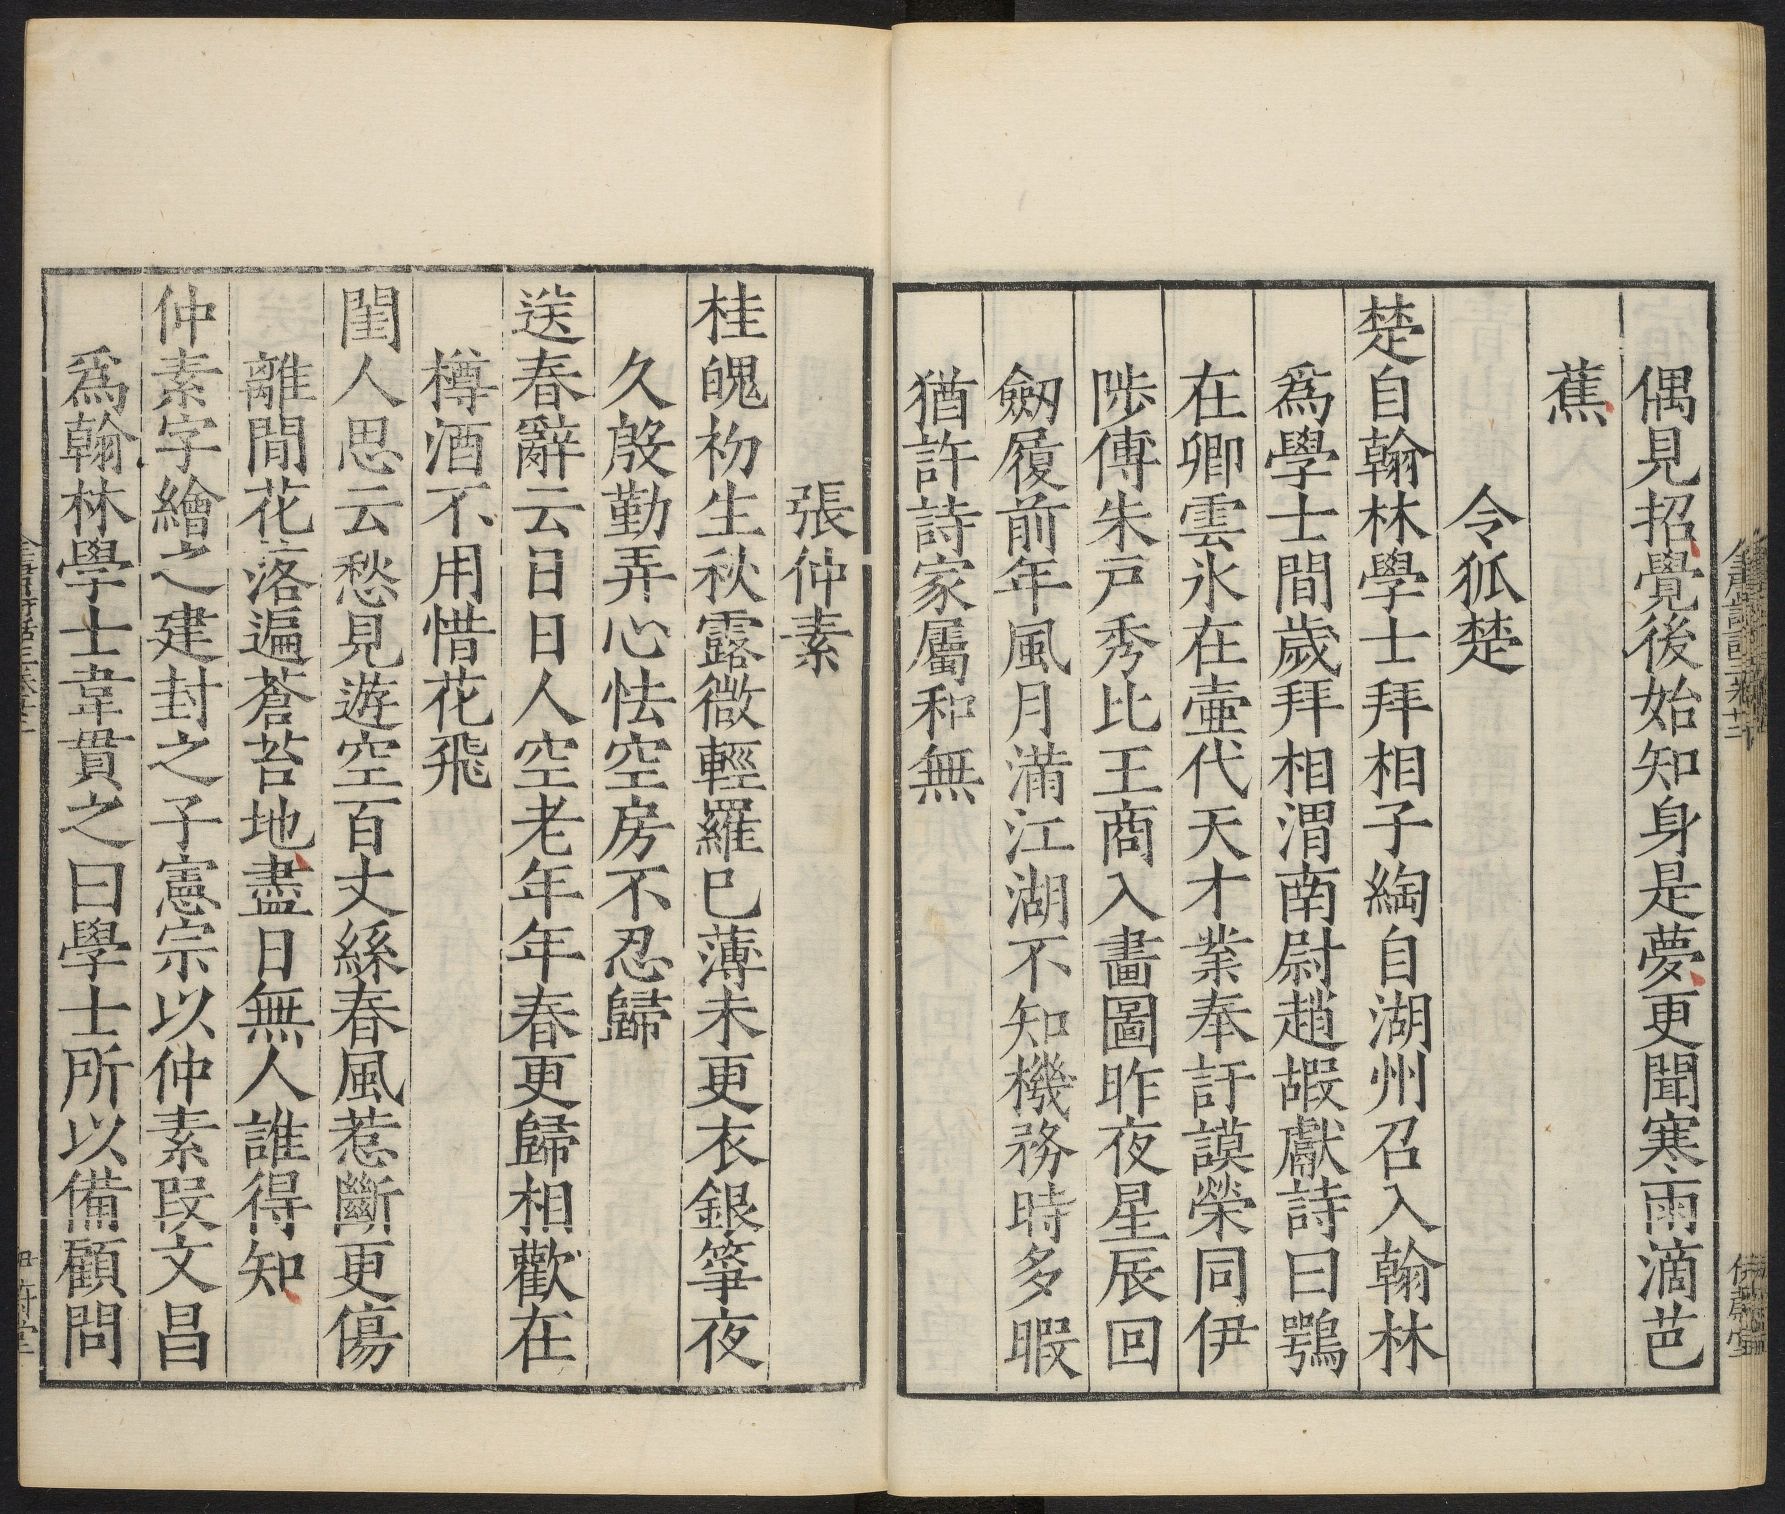 偶見招覺後始知身是夢更聞寒雨滴芭
蕉
令狐楚
楚自翰林學士拜相子綯自湖州召入翰林
爲學士間歲拜相渭南尉趙嘏獻詩曰鶚
在卿雲氷在壷代天才業奉訏謨榮同伊
陟傳朱戸秀比王商入畫圖昨夜星辰回
劒履前年風月滿江湖不知機務時多暇
猶許詩家屬和無
張仲素
桂魄初生秋露微輕羅已薄未更衣銀箏夜
久殷勤弄心怯空房不忍歸
送春辭云日日人空老年年春更歸相歡在
樽酒不用惜花飛
閨人思云愁見遊空百丈絲春風惹斷更傷
離閒花落遍蒼苔地盡日無人誰得知
仲素字繪之建封之子憲宗以仲素段文昌
爲翰林學士韋貫之曰學士所以備顧問